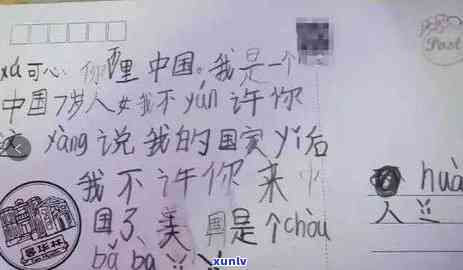 xá可心 你 中国。我是一个
中国7岁人女我不yǔn许你
yàng说我的国家yǐ后
我不许你来
国了美国是个chòu
bǎ ba
huà
人
Post
xunlv